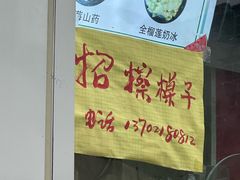 莓山药 全榴莲奶冰
招擦模子
电话 13702180812